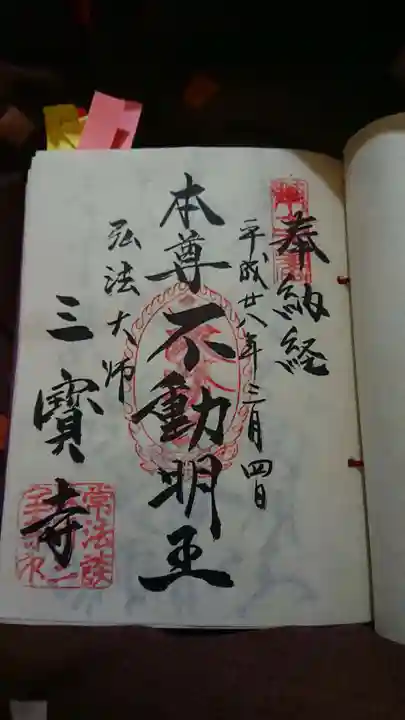 奉納経
平成廿八年三月四日
本尊不動明王
弘法大师
三寳寺